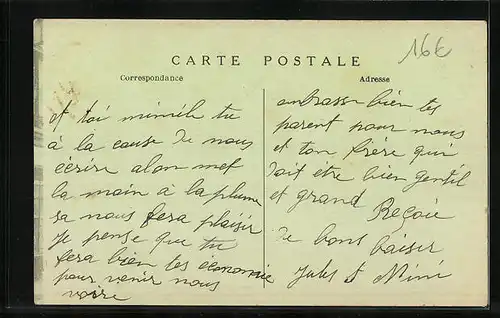 16€
CARTE POSTALE
Correspondance
Adresse
et toi minich tu
à la cause de nous
écrire alon met
la main à la plume
sa nous fera plaisir
Je pense que tu
fera bien tes économie
pour venir nous
voire
anbrasse bien tes
parent pour nous
et ton frère qui
doit être bien gentil
et grand Reçoie
de bons baiser
Jules & Mimi